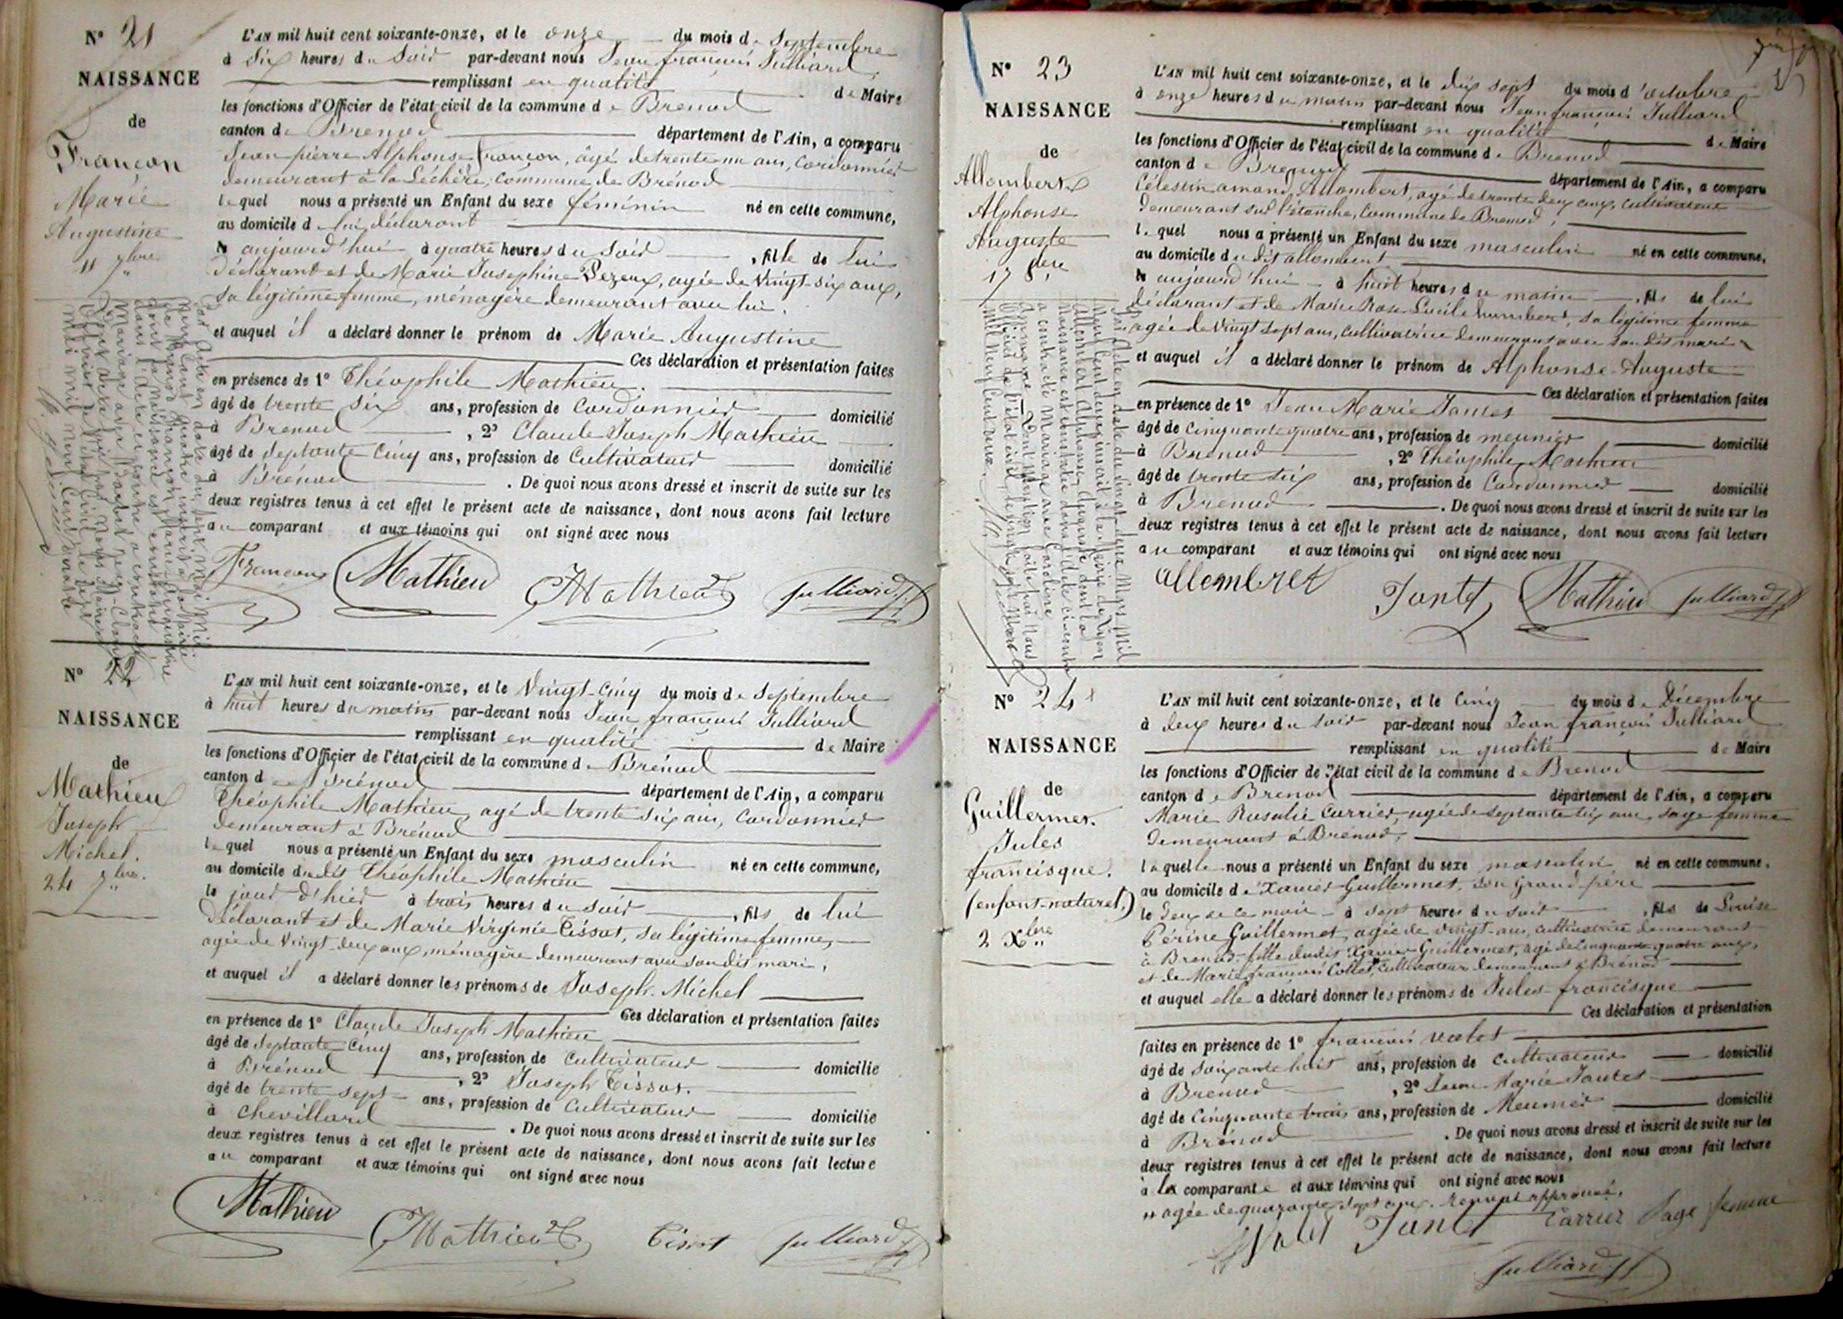 N° 21
NAISSANCE
de
Françon
Marie
Augustine
11 7bre
L'AN mil huit cent soixante-onze, et le onze du mois de Septembre
à Six heures du Soir par-devant nous Jean françois Julliard,
remplissant en qualité de Maire
les fonctions d'Officier de l'état civil de la commune de Brenod
canton de Brenod département de l'Ain, a comparu
Jean pierre Alphonse françon, âgé de trente un ans, Cordonnier
demeurant à la Léchère, Commune de Brénod
lequel nous a présenté un Enfant du sexe féminin né en cette commune,
au domicile de lui déclarant
le aujourd'hui à quatre heures du Soir, fille de lui
Déclarant et de Marie Josephine Bezeux, agée de Vingt six ans,
sa légitime femme, ménagère demeurant avec lui.
et auquel il a déclaré donner le prénom de Marie Augustine
Ces déclaration et présentation faites
en présence de 1° Théophile Mathieu.
âgé de trente six ans, profession de Cordonnier domicilié
à Brenod, 2° Claude Joseph Mathieu
âgé de Septante Cinq ans, profession de Cultivateur domicilié
à Brénod. De quoi nous avons dressé et inscrit de suite sur les
deux registres tenus à cet effet le présent acte de naissance, dont nous avons fait lecture
au comparant et aux témoins qui ont signé avec nous
Françon Mathieu Mathieu Julliard
N° 22
NAISSANCE
de
Mathieu
Joseph
Michel.
24 7bre.
L'AN mil huit cent soixante-onze, et le Vingt-Cinq du mois de Septembre
à huit heures du matin par-devant nous Jean françois Julliard
remplissant en qualité de Maire
les fonctions d'Officier de l'état civil de la commune de Brénod
canton de Brénod département de l'Ain, a comparu
Théophile Mathieu, agé de trente six ans, Cordonnier
demeurant à Brenod
lequel nous a présenté un Enfant du sexe masculin né en cette commune,
au domicile dudit Théophile Mathieu
le jour d'hier à trois heures du Soir, fils de lui
Déclarant et de Marie Virginie Tissot, sa légitime femme,
agée de Vingt deux ans, ménagère demeurant avec son dit mari,
et auquel il a déclaré donner les prénoms de Joseph Michel
Ces déclaration et présentation faites
en présence de 1° Claude Joseph Mathieu
âgé de Septante Cinq ans, profession de Cultivateur domicilié
à Brénod, 2° Joseph Tissot.
âgé de trente sept ans, profession de Cultivateur domicilié
à Chevillard. De quoi nous avons dressé et inscrit de suite sur les
deux registres tenus à cet effet le présent acte de naissance, dont nous avons fait lecture
au comparant et aux témoins qui ont signé avec nous
Mathieu Mathieu Tissot Julliard
N° 23
NAISSANCE
de
Allombert
Alphonse
Auguste
17 8bre
L'AN mil huit cent soixante-onze, et le dix sept du mois d'octobre
à onze heures du matin par-devant nous Jean françois Julliard
remplissant en qualité de Maire
les fonctions d'Officier de l'état civil de la commune de Brenod
canton de Brenod département de l'Ain, a comparu
Célestin amand Allombert, agé de trente deux ans, cultivateur
demeurant sur l'étanche, Commune de Brenod,
lequel nous a présenté un Enfant du sexe masculin né en cette commune,
au domicile dudit allombert
le aujourd'hui à huit heures du matin, fils de lui
déclarant et de Marie Rose Lucile humbert, sa légitime femme
agée de Vingt sept ans, cultivatrice demeurant avec son dit mari
et auquel il a déclaré donner le prénom de Alphonse Auguste
Ces déclaration et présentation faites
en présence de 1° Jean Marie Jantet
âgé de Cinquante quatre ans, profession de meunier domicilié
à Brenod, 2° Théophile Mathieu
âgé de trente six ans, profession de Cordonnier domicilié
à Brenod. De quoi nous avons dressé et inscrit de suite sur les
deux registres tenus à cet effet le présent acte de naissance, dont nous avons fait lecture
au comparant et aux témoins qui ont signé avec nous
allembret Jantet Mathieu Julliard
N° 24
NAISSANCE
de
Guillermet
Jules
francisque.
(enfant naturel)
2 Xbre
L'AN mil huit cent soixante-onze, et le Cinq du mois de Décembre
à deux heures du soir par-devant nous Jean françois Julliard
remplissant en qualité de Maire
les fonctions d'Officier de l'état civil de la commune de Brenod
canton de Brenod département de l'Ain, a comparu
Marie Rosalie Carrier, agée de septante six ans, sage femme
demeurant à Brénod,
laquelle nous a présenté un Enfant du sexe masculin né en cette commune,
au domicile de Xavier Guillermet, son grand père
le deux de ce mois à sept heures du soir, fils de Louise
Périne Guillermet, agée de vingt ans, cultivatrice demeurant
à Brenod, fille dudit Xavier Guillermet, agé de cinquante quatre ans,
et de Marie françoise Collet, Cultivateur demeurant à Brénod
et auquel elle a déclaré donner les prénoms de Jules francisque
Ces déclaration et présentation
faites en présence de 1° françois valet
âgé de Soixante huit ans, profession de cultivateur domicilié
à Brenod, 2° Jean Marie Jantet
âgé de Cinquante trois ans, profession de Meunier domicilié
à Brénod. De quoi nous avons dressé et inscrit de suite sur les
deux registres tenus à cet effet le présent acte de naissance, dont nous avons fait lecture
à la comparante et aux témoins qui ont signé avec nous
agée de quarante sept ans. Renvoi approuvé.
Valet Jantet Carrier Sage femme
Julliard